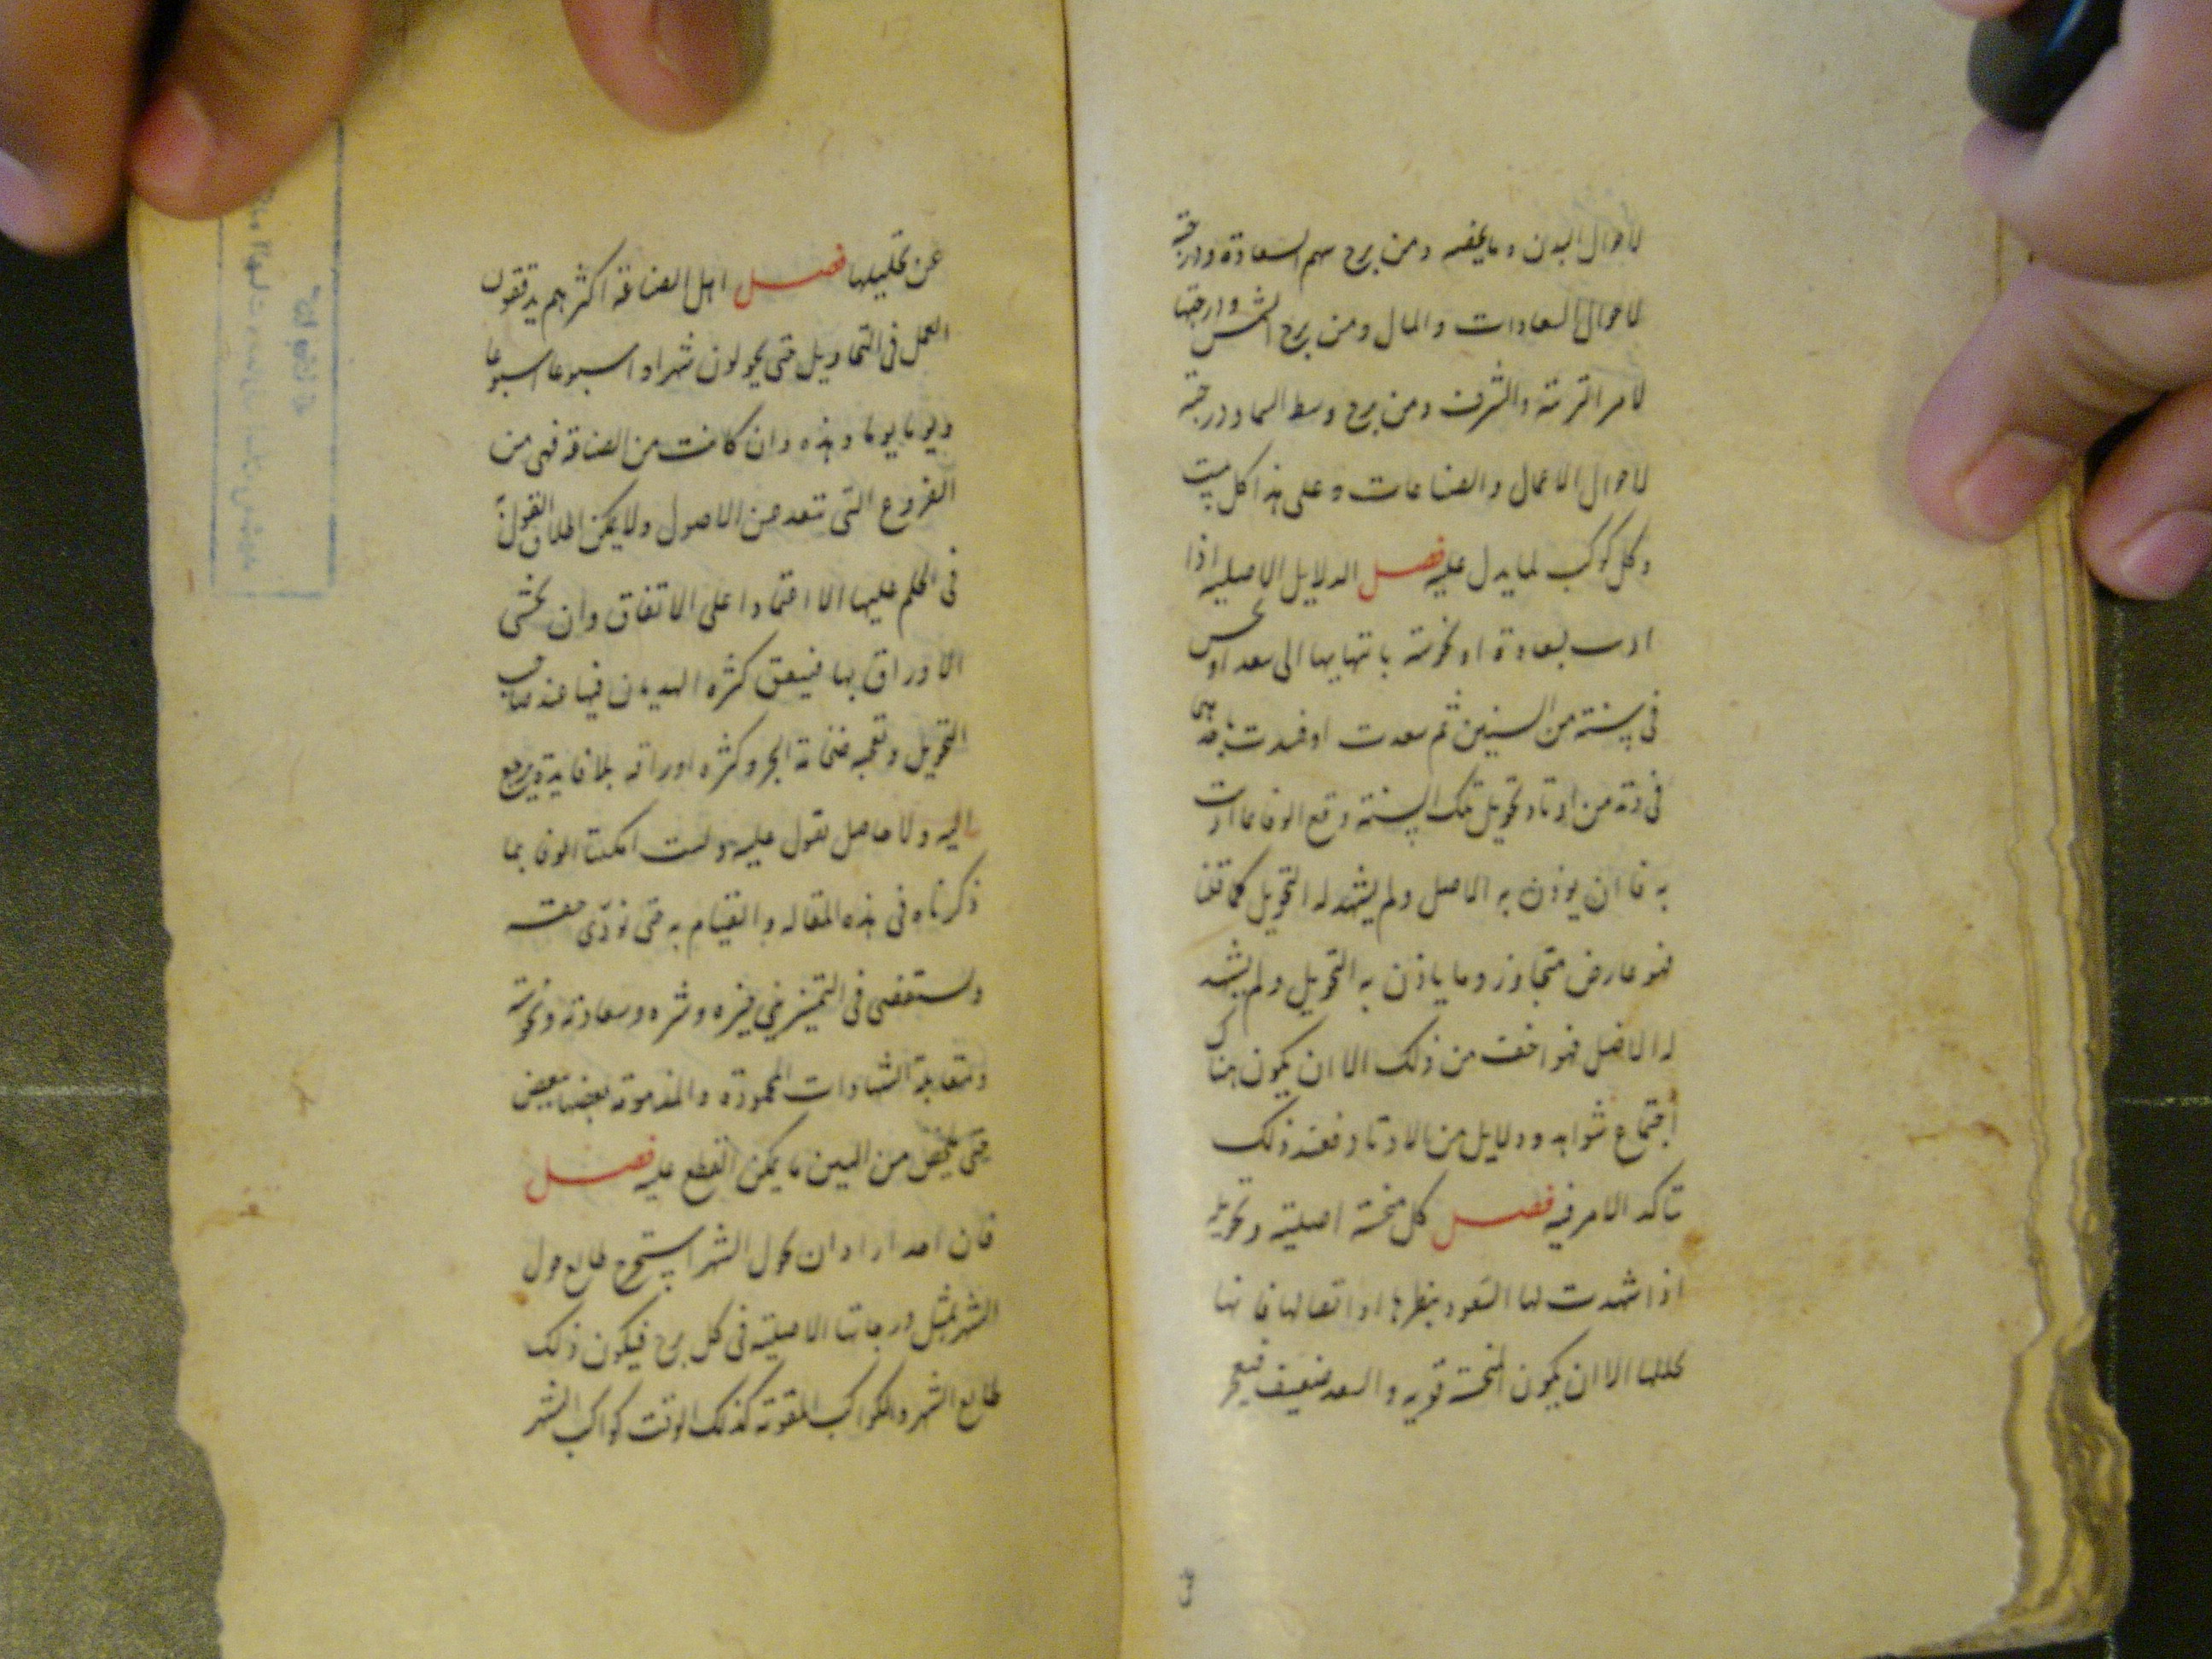 لاحوال البدن وما يخصه ومن برج سهم السعادة ودرجته
لاحوال السعادات والمال ومن برج الشمس ودرجتها
لامر الرتبة والشرف ومن برج وسط السما ودرجته
لاحوال الاعمال والصناعات وعلى هذا كل بيت
وكل كوكب لما يدل عليه فصل الدلايل الاصلية اذا
ادت بسعادة او نحوسة بانتهايها الى سعد او نحس
فى سنة من السنين ثم سعدت او فسدت
فى وتد من اوتاد تحويل تلك السنة وقع الوفا بما ادت
به فا ان يوذن به الاصل ولم يشهد له التحويل كما قلنا
فهو عارض متجاوز وما ياذن به التحويل ولم يشهد
له الاصل فهو اخف من ذلك الا ان يكون هناك
اجتماع شواهد ودلايل من الاوتاد فعند ذلك
تاكد الامر فيه فصل كل منحسة اصلية وتحويلية
اذا شهدت لها السعود بنظرها او اتصالها فانها
تحللها الا ان يكون المنحسة قوية والسعد ضعيف فيعجز
عن تحليلها فصل اهل الصناعة اكثرهم يدققون
العمل فى التحاويل حتى يحولون شهرا واسبوعا اسبوعا
ويوما يوما وهذه وان كانت من الصناعة فهى من
الفروع التى تبعد عن الاصول ولا يمكن اطلاق القول
فى الحكم عليها الا اعتمادا على الاتفاق وان تحشى
الاوراق بها فيتعق كثره الهذيان فيها عند صاحب
التحويل وتعجبه ضخامة الجرو كثره اوراقه بلا فايدة يرجع
اليه ولا حاصل يعول عليه وليت امكننا الوفا بما
ذكرناه فى هذه المقاله والقيام به حتى نؤدى حقه
ونستقصى فى التمييز بين خيره وشره وسعادته ونحوسته
ومقابلة الشهادات المحمودة والمذمومة بعضها ببعض
حتى يتخلص من البين ما يمكن القطع عليه فصل
فان احد اراد ان يحول الشهر استخرج طالع حول
الشهر بمثل درجاتها الاصلية فى كل برج فيكون ذلك
طالع الشهر والكواكب المقومة كذلك الوقت كواكب الشهر